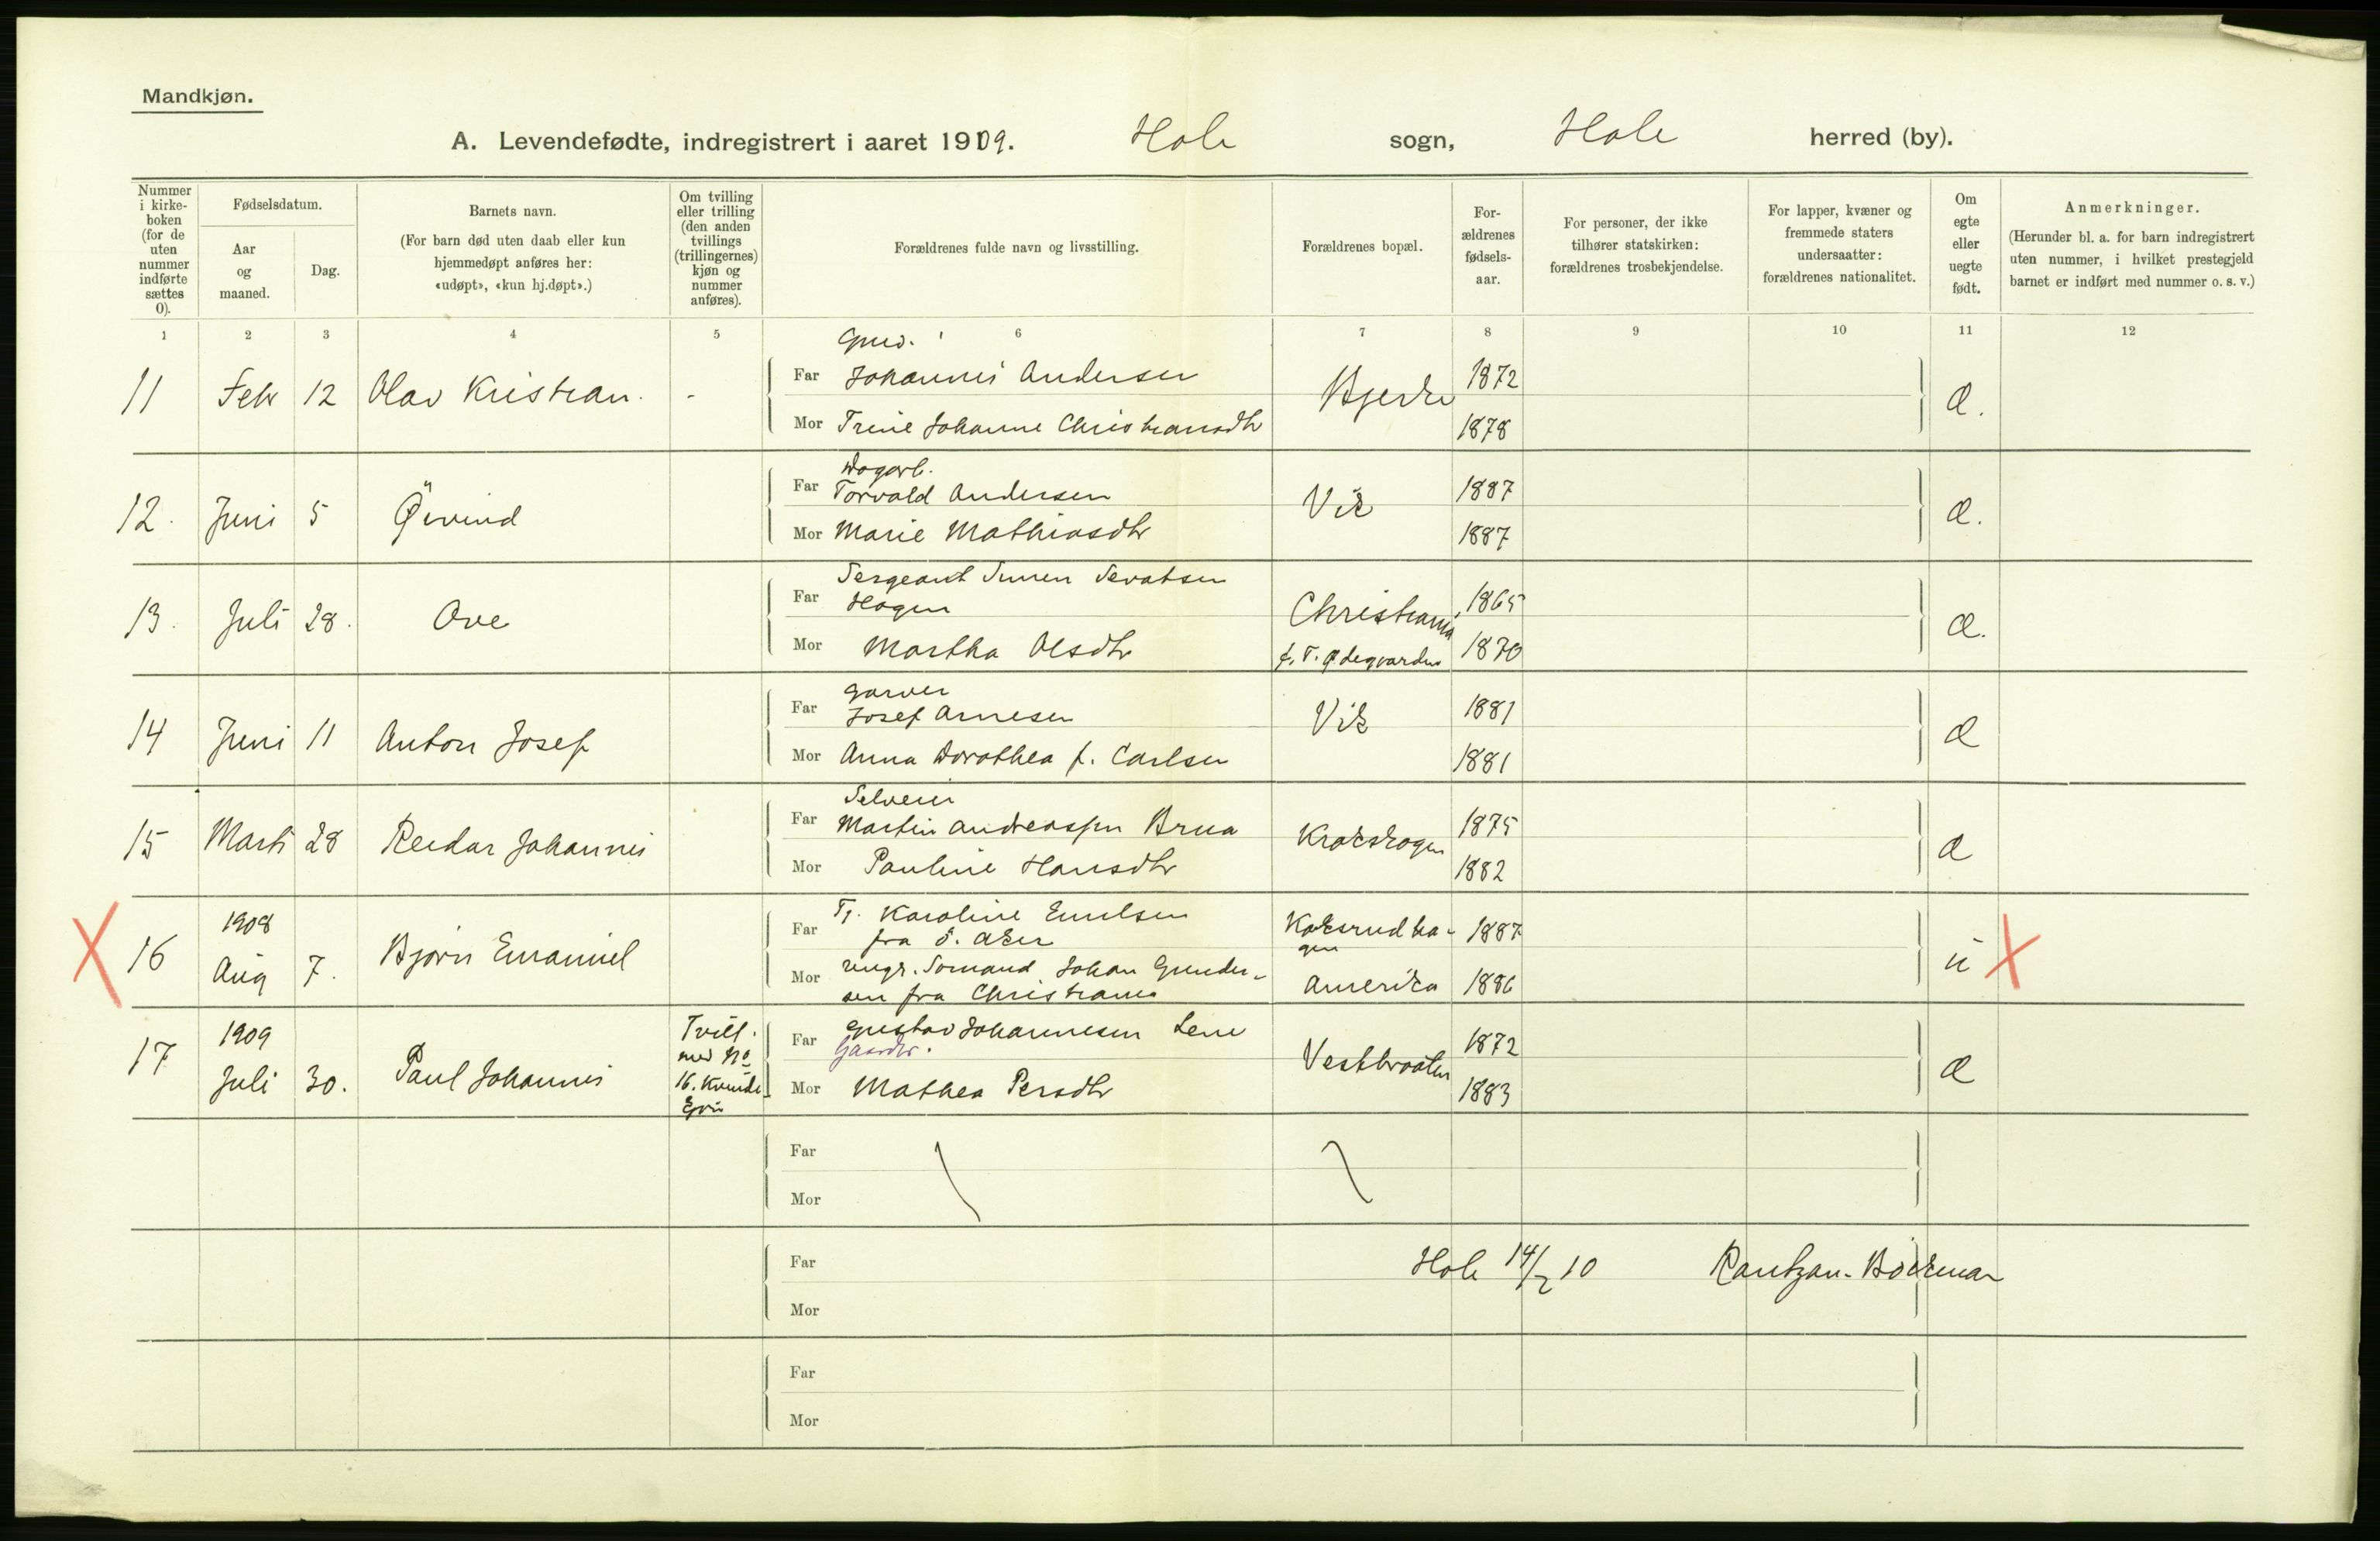 Mandkjøn.
A. Levendefødte, indregistrert i aaret 1909. Hole sogn, Hole herred (by).
Nummer i kirke-boken (for de uten nummer indførte sættes 0).
Fødselsdatum.
Aar og maaned.
Dag.
Barnets navn.
(For barn død uten daab eller kun hjemmedøpt anføres her: «udøpt», «kun hj.døpt».)
Om tvilling eller trilling (den anden tvillings (trillingernes) kjøn og nummer anføres).
Forældrenes fulde navn og livsstilling.
Forældrenes bopæl.
For-ældrenes fødsels-aar.
For personer, der ikke tilhører statskirken: forældrenes trosbekjendelse.
For lapper, kvæner og fremmede staters undersaatter: forældrenes nationalitet.
Om egte eller uegte født.
Anmerkninger.
(Herunder bl. a. for barn indregistrert uten nummer, i hvilket prestegjeld barnet er indført med nummer o. s. v.)
1 2 3 4 5 6 7 8 9 10 11 12
11 Febr 12 Olav Kristian. -
Far Johannes Andersen 1872
Mor Trine Johanne Christiansdtr 1878
Bjerke
12. Juni 5 Øivind
Dagarb.
Far Torvald Andersen Vik 1887
Mor Marie Mathiasdtr 1887
13. Juli 28. Ove
Sergeant Simen Sevatsen
Far Hagen Christiania 1865
Mor Martha Olsdtr f. T. Ødegaarden 1870
14 Juni 11 Anton Josef
Garver
Far Josef Arnesen Vik 1881
Mor Anna Dorothea f. Carlsen 1881
15 Marts 28 Reidar Johannes
Selveier
Far Martin Andreassen Brua Krokskogen 1875
Mor Pauline Hansdtr 1882
X 16 1908 Aug 7. Bjørn Emanuel
Far Tj. Karoline Emilsen 1887
fra Ö. Aker
Mor ungk. Sømand Johan Gunder- Amerika 1886
sen fra Christiania
ü X
17 1909 Juli 30. Paul Johannes
Tvill. med No 16. Kvinde
Far Gustav Johannesen Lene 1872
Gaardbr.
Mor Mathea Persdtr Vestbraaten 1883
Far
Mor
Far
Mor
Hole 14/2 10 Rantzau-Böckman
Far
Mor